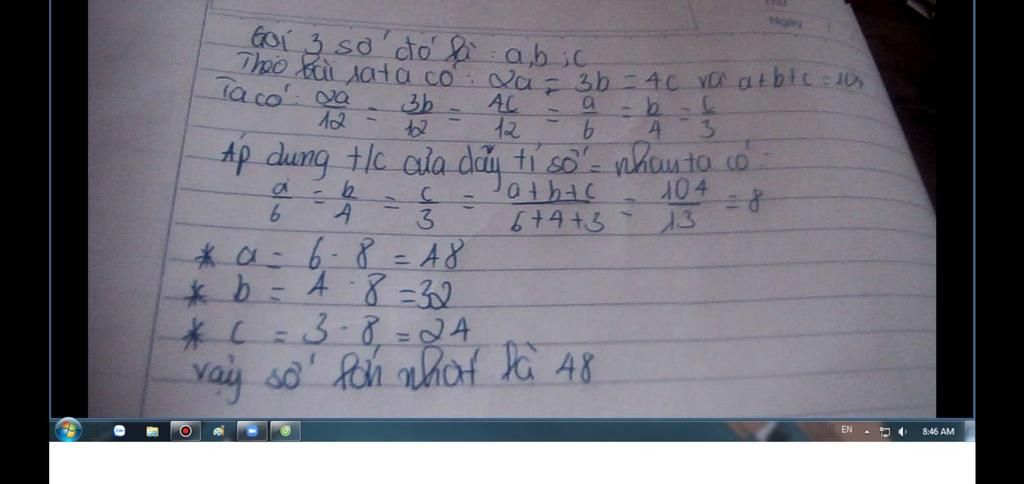 Gọi 3 số đó là: a,b;c
Theo bài ra ta có: 2a = 3b = 4c và a+b+c = 104
Ta có: 2a/12 = 3b/12 = 4c/12 = a/6 = b/4 = c/3
Áp dung t/c của dãy tỉ số = nhau ta có:
a/6 = b/4 = c/3 = a+b+c/6+4+3 = 104/13 = 8
* a = 6 . 8 = 48
* b = 4 . 8 = 32
* c = 3 . 8 = 24
vậy số lớn nhất là 48
EN 8:46 AM